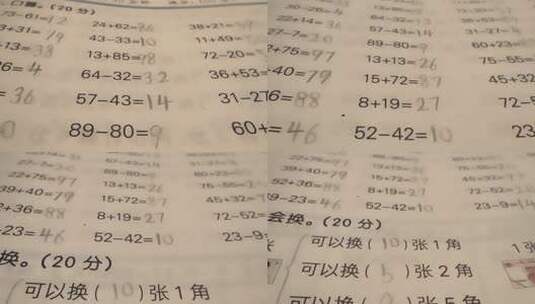 口算。(20 分)
73−61= 24+62=86 38+21=
3+31= 43−33=10 11+49=
+13=38 13+85=98 72−20=
6=4 64−32=32 36+53=
=36 57−43=14 31−2
0 89−80=9 60+
64−32=32 36+53
22+14=36 57−43=14 31−27
27−7=20 89−80=9 60+23=
+75=97 13+13=26 75−55=
−40=79 15+72=87 45+32
6=88 8+19=27 72−5
=46 52−42=10 23−
27−7=20 89−80=9
22+75=97 13+13=26 75−55=
39+40=79 15+72=87 45+32=
2+36=88 8+19=27 72−52=
−23=46 52−42=10 23−9
换。(20 分)
可以换(10)张 1 角
22+75=97 13+13=26 75−55=
39+40=79 15+72=87 45+32=
52+36=88 8+19=27 72−52=
−23=46 52−42=10 23−9=14
会换。(20 分)
可以换(10)张 1 角 1 张
可以换(5)张 2 角
可以换(2)张 5 角